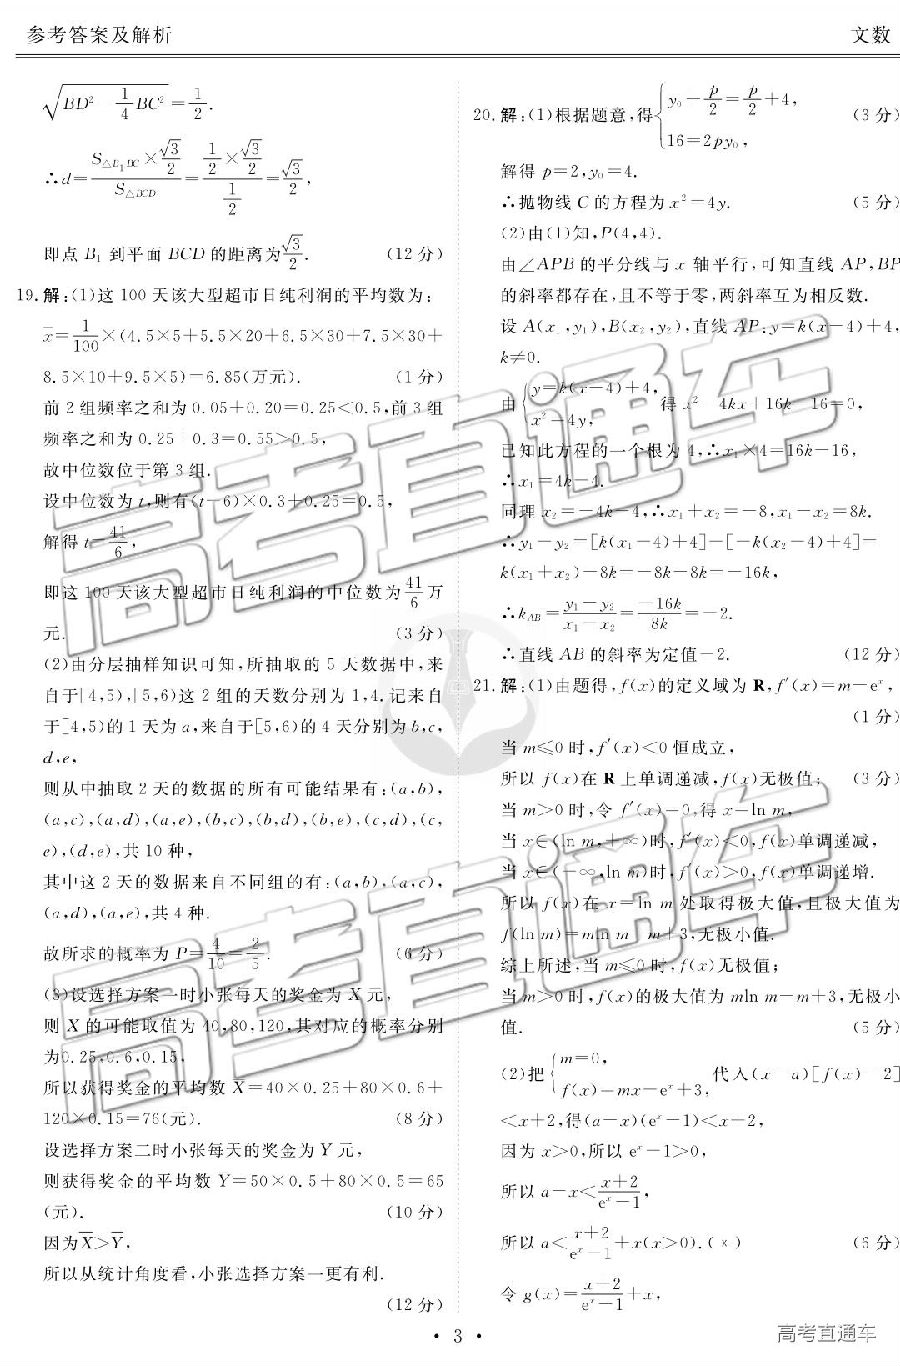 参考答案及解析
文数
√(BD² 1/4 BC²) = 1/2.
∴d=(S△B₁BC×√3/2)/S△BCD=(1/2×√3/2)/(1/2)=√3/2,
即点 B₁ 到平面 BCD 的距离为√3/2. (12 分)
19. 解:(1)这 100 天该大型超市日纯利润的平均数为:
x̄=1/100×(4.5×5+5.5×20+6.5×30+7.5×30+
8.5×10+9.5×5)=6.85(万元). (1 分)
前 2 组频率之和为 0.05+0.20=0.25<0.5,前 3 组
频率之和为 0.25 0.3=0.55>0.5,
故中位数位于第 3 组.
设中位数为 t,则有(t-6)×0.3+0.25=0.5,
解得 t=41/6,
即这 100 天该大型超市日纯利润的中位数为41/6万
元. (3 分)
(2)由分层抽样知识可知,所抽取的 5 天数据中,来
自于[4,5),[5,6)这 2 组的天数分别为 1,4.记来自
于[4,5)的 1 天为 a,来自于[5,6)的 4 天分别为 b,c,
d,e,
则从中抽取 2 天的数据的所有可能结果有:(a,b),
(a,c),(a,d),(a,e),(b,c),(b,d),(b,e),(c,d),(c,
e),(d,e),共 10 种,
其中这 2 天的数据来自不同组的有:(a,b),(a,c),
(a,d),(a,e),共 4 种.
故所求的概率为 P=4/10=2/5. (6 分)
(3)设选择方案一时小张每天的奖金为 X 元,
则 X 的可能取值为 40,80,120,其对应的概率分别
为0.25,0.6,0.15,
所以获得奖金的平均数 X̄=40×0.25+80×0.6+
120×0.15=76(元). (8 分)
设选择方案二时小张每天的奖金为 Y 元,
则获得奖金的平均数 Y=50×0.5+80×0.5=65
(元). (10 分)
因为X̄>Ȳ,
所以从统计角度看,小张选择方案一更有利.
(12 分)
20. 解:(1)根据题意,得{y₀-p/2=p/2+4, 16=2py₀, (3 分)
解得 p=2,y₀=4.
∴抛物线 C 的方程为 x²=4y. (5 分)
(2)由(1)知,P(4,4).
由∠APB 的平分线与 x 轴平行,可知直线 AP,BP
的斜率都存在,且不等于零,两斜率互为相反数.
设 A(x ,y₁),B(x₂,y₂),直线 AP:y=k(x-4)+4,
k≠0.
由{y=k(x-4)+4, x²=4y, 得 x² 4kx+16k 16=0,
已知此方程的一个根为 4,∴x₁×4=16k-16,
∴x₁=4k-4.
同理 x₂=-4k-4,∴x₁+x₂=-8,x₁-x₂=8k.
∴y₁-y₂=[k(x₁-4)+4]-[-k(x₂-4)+4]=
k(x₁+x₂)-8k=-8k-8k=-16k,
∴k_AB=(y₁-y₂)/(x₁-x₂)=-16k/8k=-2.
∴直线 AB 的斜率为定值-2. (12 分)
21. 解:(1)由题得,f(x)的定义域为 R,f′(x)=m-eˣ,
(1 分)
当 m≤0 时,f′(x)<0 恒成立,
所以 f(x)在 R 上单调递减,f(x)无极值; (3 分)
当 m>0 时,令 f′(x)=0,得 x=ln m,
当 x∈(ln m,+∞)时,f′(x)<0,f(x)单调递减,
当 x∈(-∞,ln m)时,f′(x)>0,f(x)单调递增.
所以 f(x)在 x=ln m 处取得极大值,且极大值为
f(ln m)=mln m m+3,无极小值.
综上所述,当 m≤0 时,f(x)无极值;
当 m>0 时,f(x)的极大值为 mln m-m+3,无极小
值. (5 分)
(2)把{m=0, f(x)=mx-eˣ+3, 代入(x a)[f(x) 2]
<x+2,得(a-x)(eˣ-1)<x-2,
因为 x>0,所以 eˣ-1>0,
所以 a-x<(x+2)/(eˣ-1),
所以 a<(x+2)/(eˣ-1)+x(x>0).(*) (6 分)
令 g(x)=(x-2)/(eˣ-1)+x,
• 3 •
高考直通车
高考直通车
高考直通车